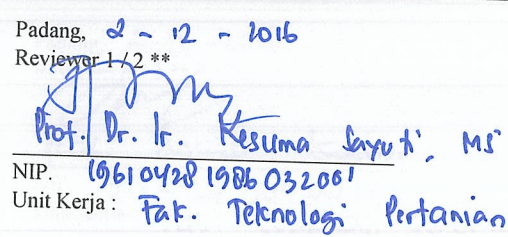 Padang, 2 - 12 - 2016
Reviewer 1 / 2 **
Prof. Dr. Ir. Kesuma Sayuti, MS
NIP. 196104281986032001
Unit Kerja : Fak. Teknologi Pertanian